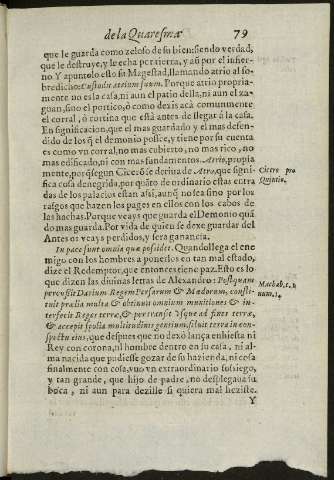 de la Quaresma 79
que le guarda como zeloso de su bien: siendo verdad,
que le destruye, y le echa por tierra, y aũ por el infier-
no. Y apuntolo esto su Magestad, llamando atrio al so-
bredicho: Custodit atrium suum. Porque atrio propria-
mente no es la casa, ni aun el patio della, ni aun el za-
guan, sino el portico, ò como dezis acà comunmente
el corral, ò cortina que està antes de llegar à la casa.
En significacion, que el mas guardado y el mas defen-
dido de los q̃ el demonio possee, y tiene por su cuenta
es como vn corral, no mas cubierto, no mas rico, no
mas edificado, ni con mas fundamentos. Atrio, propia
mente, porq̃ segun Ciceró se deriua de Atro, que signi-
fica cosa denegrida, por quãto de ordinario estas entra
das de los palacios estan assi, aunq̃ no sea sino por los
rasgos que hazen los pages en ellos con los cabos de
las hachas. Porque veays que guarda el Demonio quã
do mas guarda. Por vida de quien se dexe guardar del
Antes os veays perdidos, y serà ganancia.
In pace sunt omnia quæ possidet. Quando llega el ene
migo con los hombres a ponerlos en tan mal estado,
dize el Redemptor, que entonces tiene paz. Esto es lo
que dizen las diuinas letras de Alexandro: Postquam
percussit Darium Regem Persarum & Medorum, consti-
tuit prælia multa & obtinuit omnium munitiones & in-
terfecit Reges terræ, & pertransijt vsque ad fines terræ,
& accepit spolia multitudinis gentium, siluit terra in con-
spectu eius, que despues que no dexò lança enhiesta ni
Rey con corona, ni hombre dentro en su casa, ni al-
ma nacida que pudiesse gozar de su hazienda, ni cosa
finalmente con cosa, vuo vn extraordinario sosiego,
y tan grande, que hijo de padre, no desplegaua su
boca, ni aun para dezille si quiera mal heziste.
Y
Cicero pro
Quintio.
Machab. 1.
num. 1.